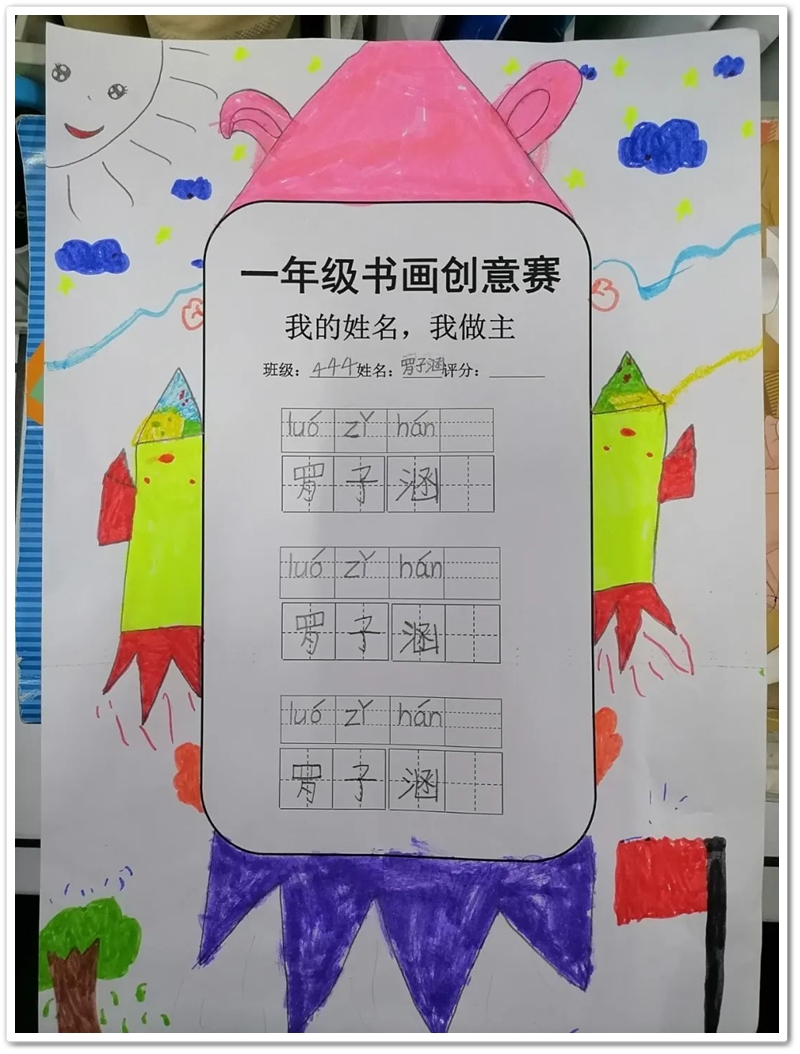 一年级书画创意赛
我的姓名，我做主
班级：444 姓名：罗子涵 评分：
luó zǐ hán
罗子涵
luó zǐ hán
罗子涵
luó zǐ hán
罗子涵